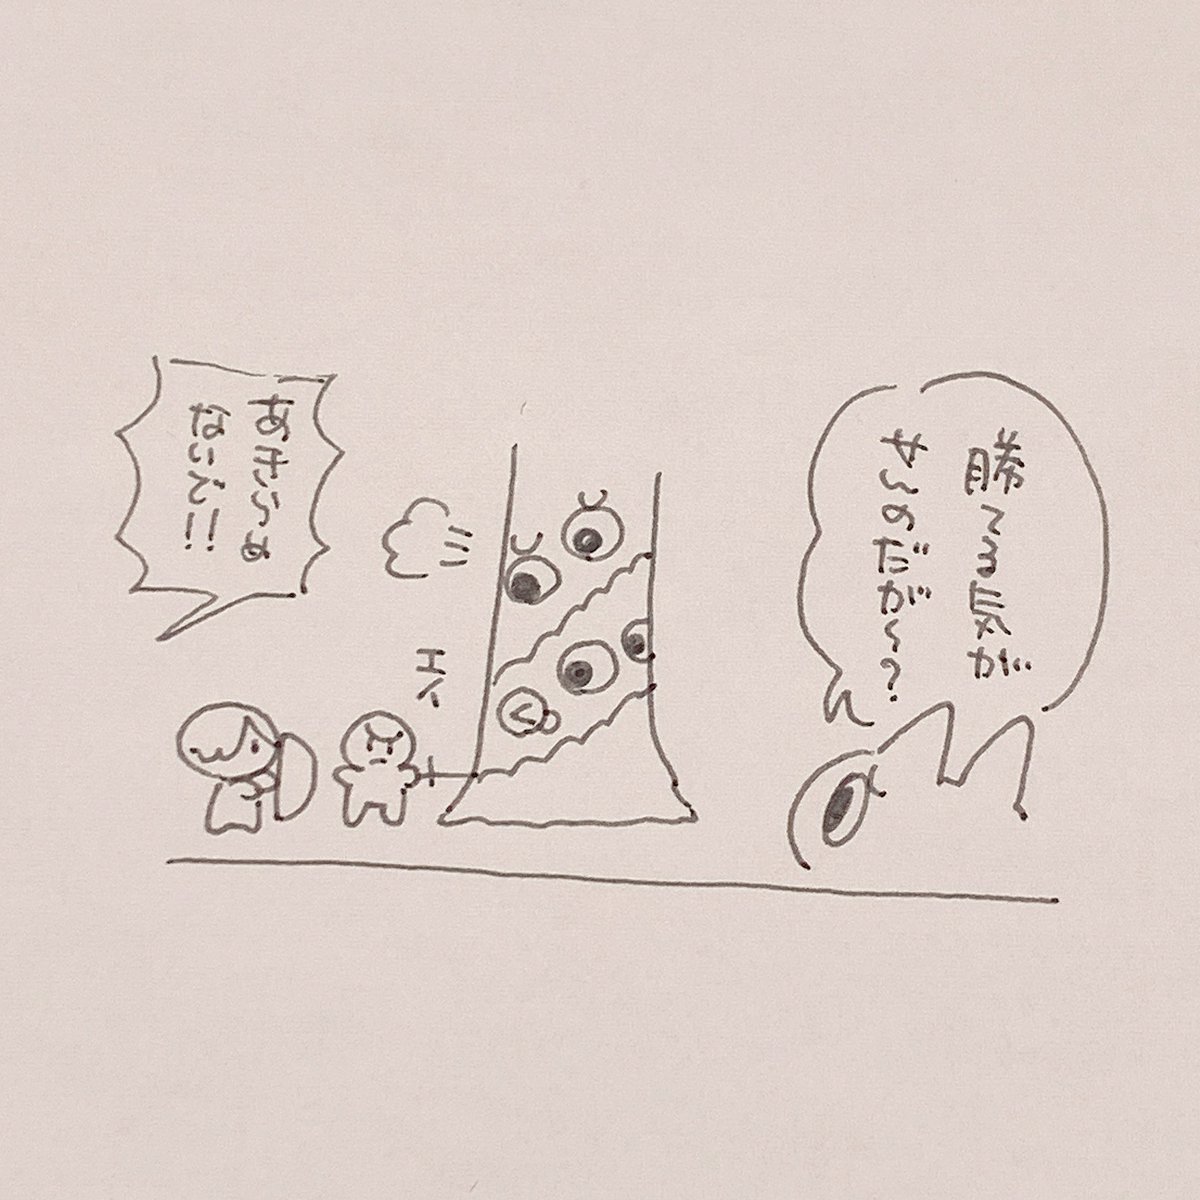 勝てる気が
せんのだが〜?
エイ
あきらめ
ないで!!